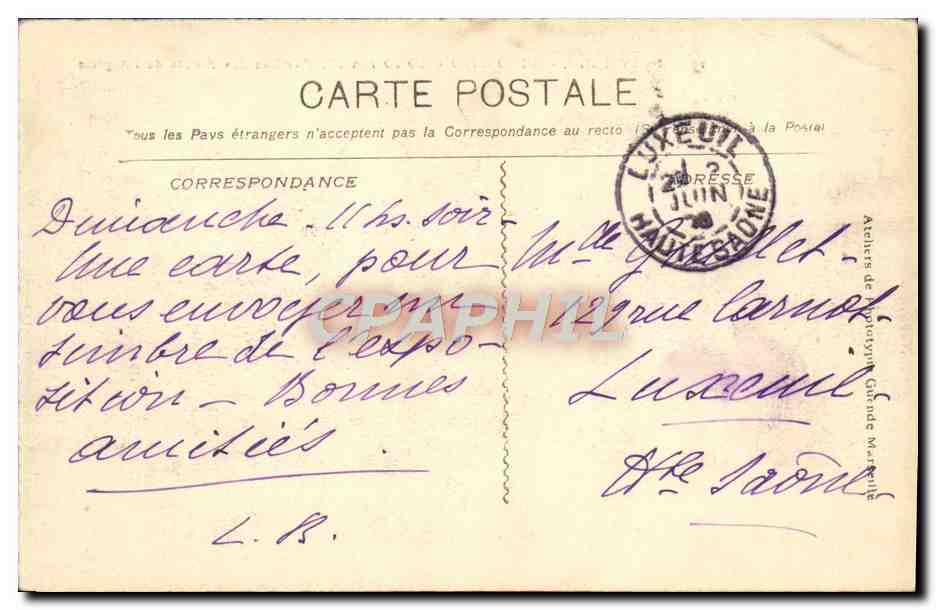 CARTE POSTALE
Tous les Pays étrangers n'acceptent pas la Correspondance au recto à la Poste
CORRESPONDANCE
ADRESSE
LUXEUIL
JUIN
HAUTE SAONE
Dimanche. 11 hs. soir
Une carte, pour
vous envoyer un
timbre de l'expo-
sition - Bonnes
amitiés.
L. B.
Mlle
129 rue Carnot
Luxeuil
Hte Saône
Ateliers de Phototypie Guende Marseille
CPAPHIL